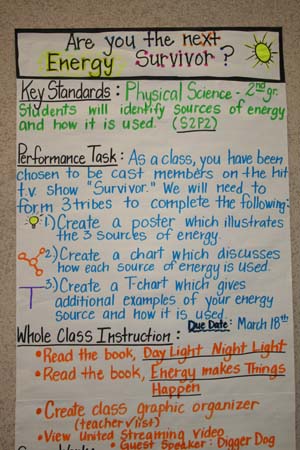 Are you the next
Energy Survivor?
Key Standards: Physical Science - 2nd gr.
Students will identify sources of energy
and how it is used." (S2P2)
Performance Task: As a class, you have been
chosen to be cast members on the hit
t.v. show "Survivor." We will need to
form 3 tribes to complete the following:
1) Create a poster which illustrates
the 3 sources of energy.
2) Create a chart which discusses
how each source of energy is used.
3) Create a T-chart which gives
additional examples of your energy
source and how it is used.
Due Date: March 18th
Whole Class Instruction:
• Read the book, Day Light Night Light
• Read the book, Energy makes Things
Happen
• Create class graphic organizer
(teacher √list)
• View United Streaming video
• Guest Speaker: Digger Dog